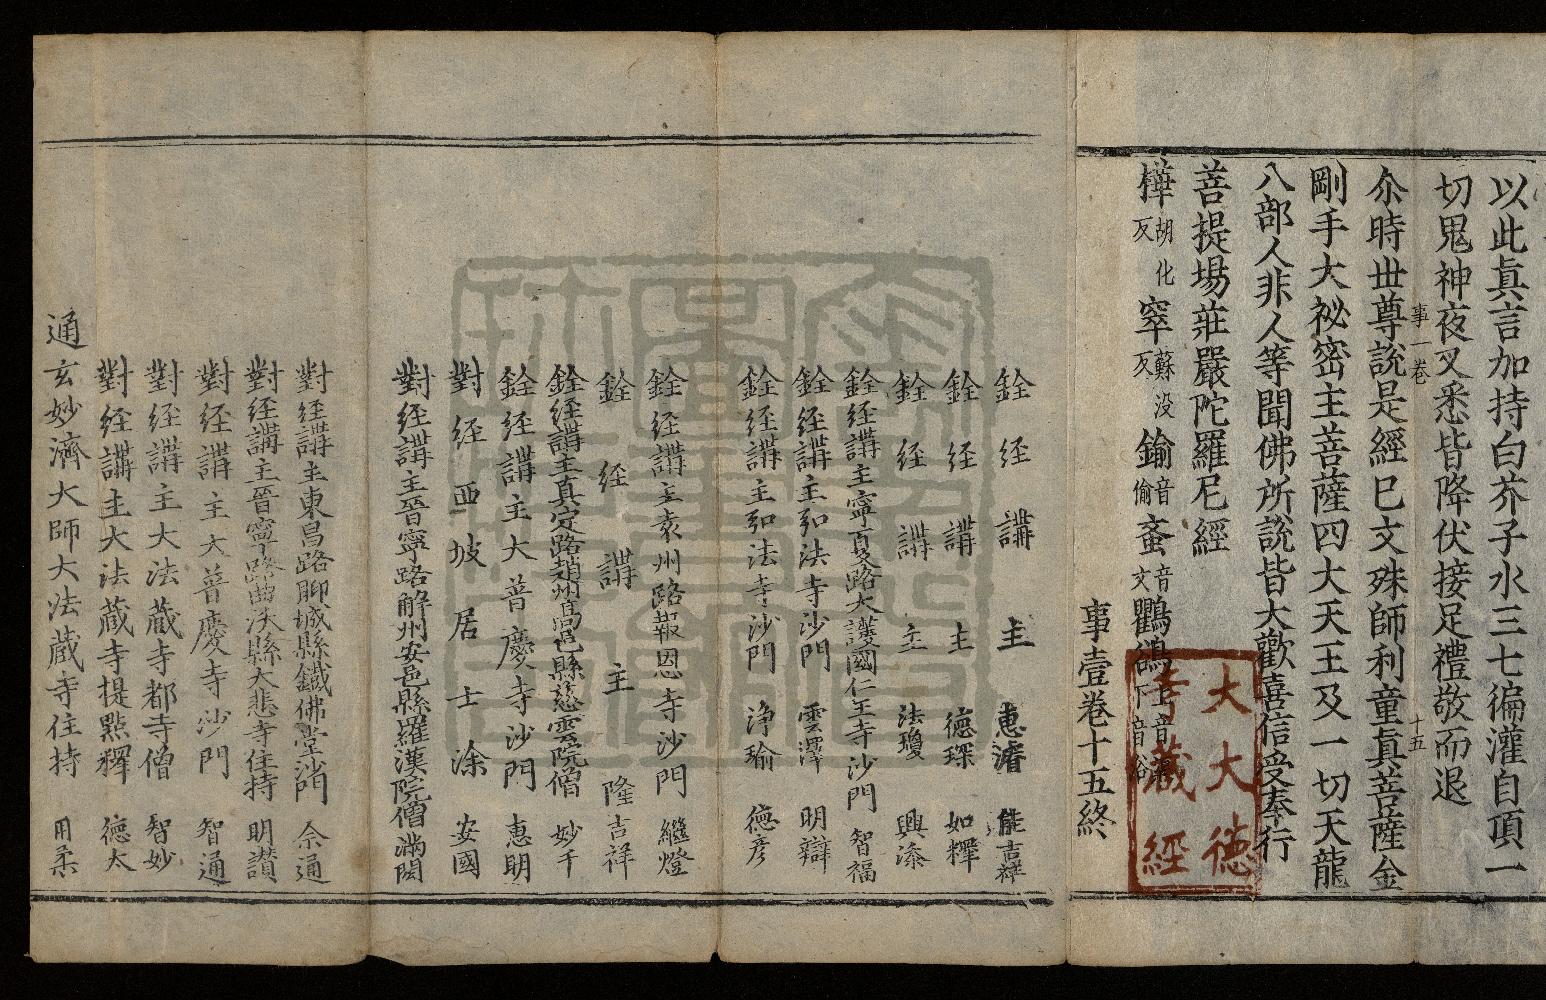 以此真言加持白芥子水三七徧灌自頂一
切鬼神夜叉悉皆降伏接足禮敬而退
事一卷
十五
尒時世尊說是經已文殊師利童真菩薩金
剛手大祕密主菩薩四大天王及一切天龍
八部人非人等聞佛所說皆大歡喜信受奉行
菩提場莊嚴陀羅尼經
樺胡化反窣蘇没反鍮音偷蚉音文鸜鵒
事壹卷十五終
大大德
寺藏經
銓經講主 惠濬 能吉祥
銓經講主 德琛 如釋
銓經講主 法瓊 興漆
銓經講主寧夏路大護國仁王寺沙門 智福
銓經講主弘法寺沙門 雲澤 明辯
銓經講主弘法寺沙門 淨瑜 德彦
銓經講主袁州路報恩寺沙門 繼燈
銓經講主 隆吉祥
銓經講主真定路趙州髙邑縣慈雲院僧 妙千
銓經講主大普慶寺沙門 惠明
對經西坡居士涂 安國
對經講主晉寧路解州安邑縣羅漢院僧 滿閏
對經講主東昌路聊城縣鐵佛堂沙門 佘通
對經講主晉寧路曲沃縣大悲寺住持 明讃
對經講主大普慶寺沙門 智通
對經講主大法藏寺都寺僧 智妙
對經講主大法藏寺提點釋 德太
通玄妙濟大師大法藏寺住持 用柔